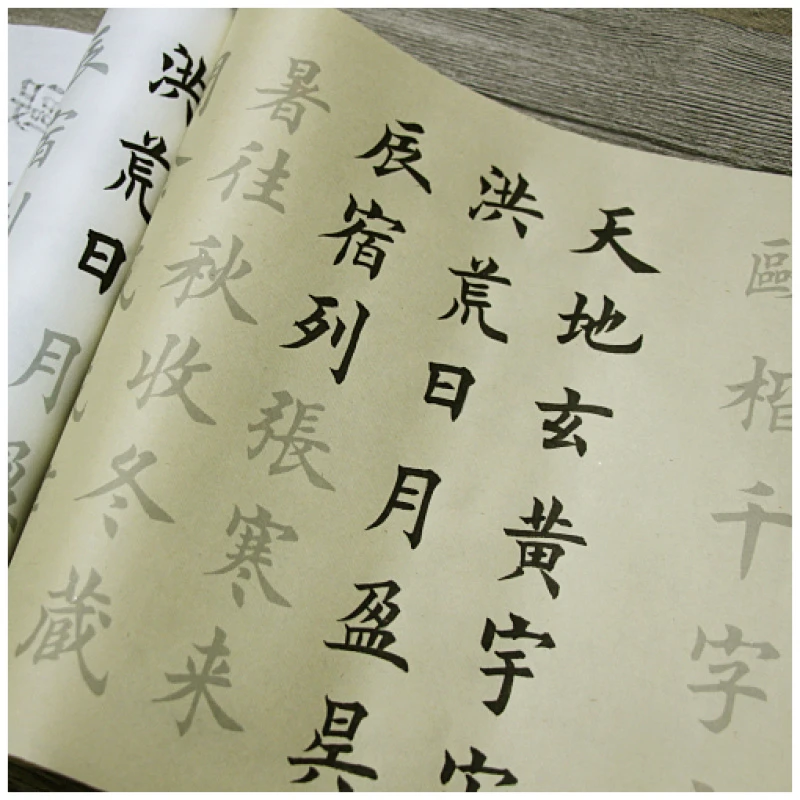 歐楷千字
天地玄黄宇
洪荒日月盈昃
辰宿列張寒来
暑往秋收冬蔵
洪荒日月
宿